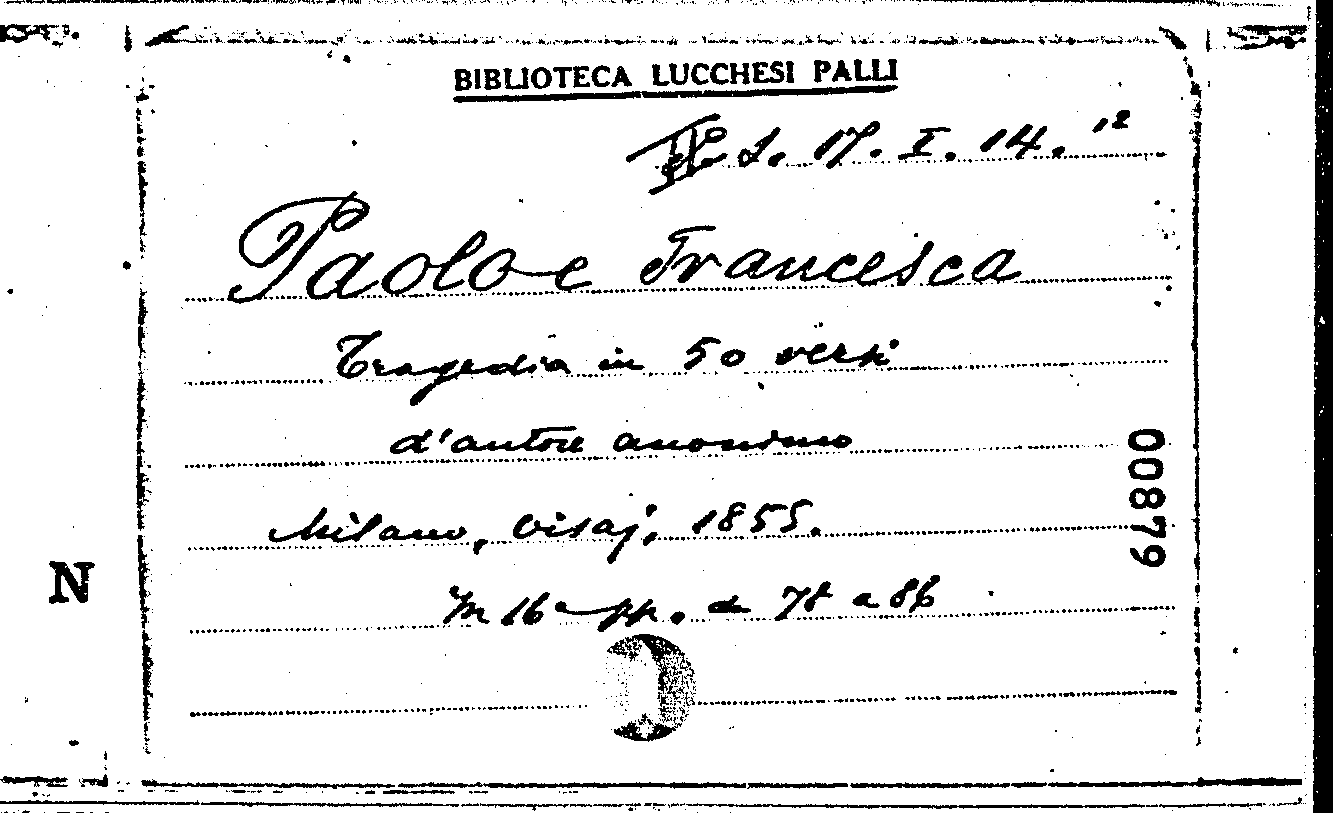 BIBLIOTECA LUCCHESI PALLI
L. 17. I. 14. 12
Paolo e Francesca
Tragedia in 50 versi
d'autore anonimo
Milano, Visaj, 1855.
In 16° pp. da 78 a 86
00879
N